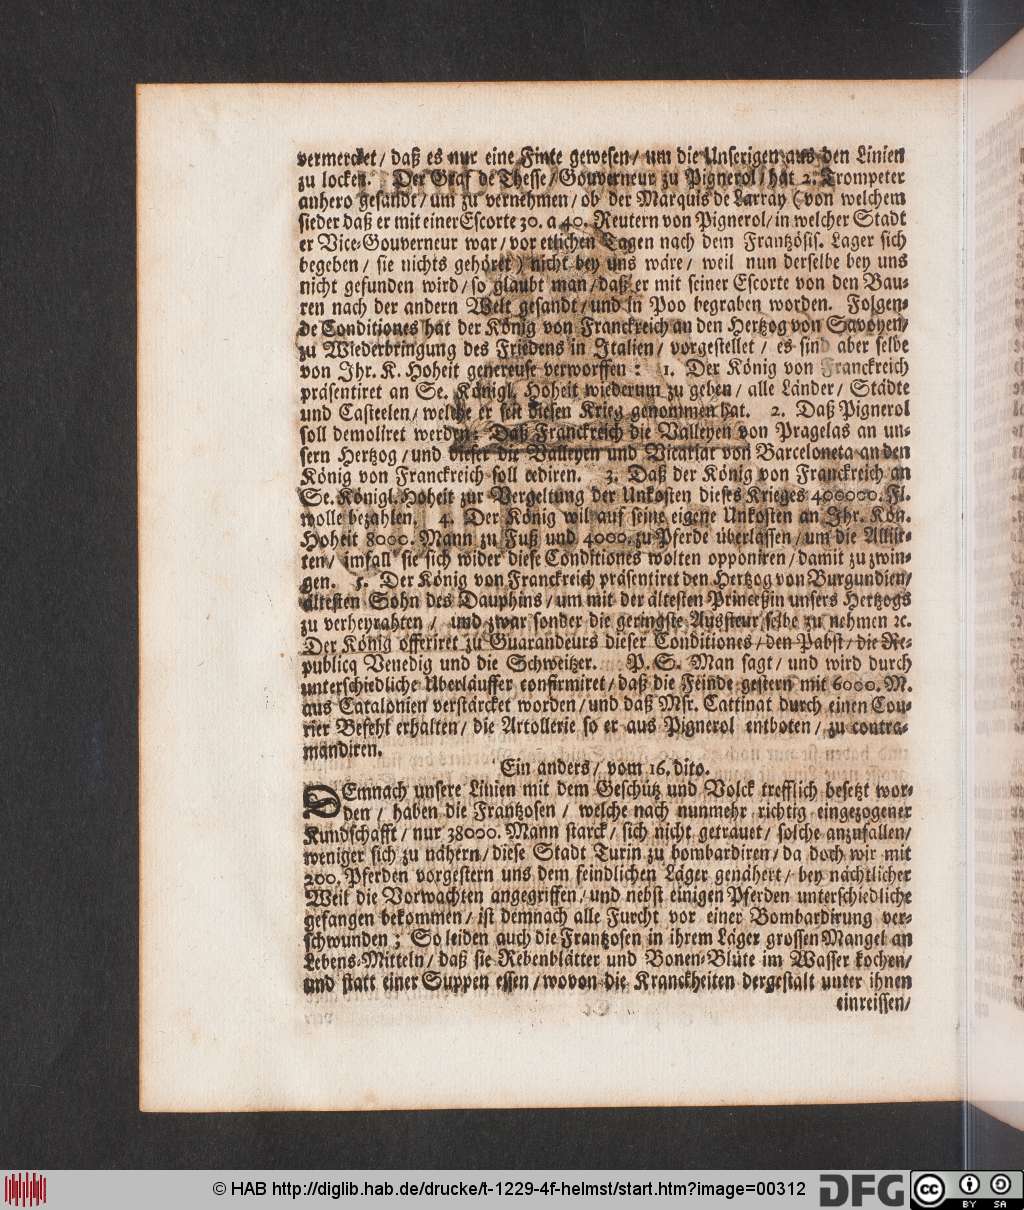 vermercket / daß es nur eine Finte gewesen / um die Unserigen aus den Linien
zu locken. Der Graf de Thesse / Gouverneur zu Pignerol / hat 2. Trompeter
anhero gesandt / um zu vernehmen / ob der Marquis de Larray (von welchem
sieder daß er mit einer Escorte 30. a 40. Reutern von Pignerol / in welcher Stadt
er Vice-Gouverneur war / vor etlichen Tagen nach dem Frantzösis. Lager sich
begeben / sie nichts gehöret) nicht bey uns wäre / weil nun derselbe bey uns
nicht gefunden wird / so glaubt man / daß er mit seiner Escorte von den Bau-
ren nach der andern Welt gesandt / und in Poo begraben worden. Folgen-
de Conditiones hat der König von Franckreich an den Hertzog von Savoyen /
zu Wiederbringung des Friedens in Italien / vorgestellet / es sind aber selbe
von Ihr. K. Hoheit genereuse verworffen: 1. Der König von Franckreich
präsentiret an Se. Königl. Hoheit wiederum zu geben / alle Länder / Städte
und Casteelen / welche er seit diesen Krieg genommen hat. 2. Daß Pignerol
soll demoliret werden: Daß Franckreich die Valleyen von Pragelas an un-
sern Hertzog / und dieser die Valleyen und Vicariat von Barceloneta an den
König von Franckreich soll cediren. 3. Daß der König von Franckreich an
Se. Königl. Hoheit zur Vergeltung der Unkosten dieses Krieges 400000. Fl.
wolle bezahlen. 4. Der König wil auf seine eigene Unkosten an Ihr. Kön.
Hoheit 8000. Mann zu Fuß und 4000. zu Pferde überlassen / um die Alliir-
ten / imfall sie sich wider diese Conditiones wolten opponiren / damit zu zwin-
gen. 5. Der König von Franckreich präsentiret den Hertzog von Burgundien /
ältesten Sohn des Dauphins / um mit der ältesten Princeßin unsers Hertzogs
zu verheyrahten / und zwar sonder die geringste Aussteur selbe zu nehmen ꝛc.
Der König offeriret zu Guarandeurs dieser Conditiones / den Pabst / die Re-
publicq Venedig und die Schweitzer. P. S. Man sagt / und wird durch
unterschiedliche Uberläuffer confirmiret / daß die Feinde gestern mit 6000. M.
aus Catalonien verstärcket worden / und daß Msr. Cattinat durch einen Cou-
rier Befehl erhalten / die Artollerie so er aus Pignerol entboten / zu contra-
mandiren.
Ein anders / vom 16. dito.
DEmnach unsere Linien mit dem Geschütz und Volck trefflich besetzt wor-
den / haben die Frantzosen / welche nach nunmehr richtig eingezogener
Kundschafft / nur 38000. Mann starck / sich nicht getrauet / solche anzufallen /
weniger sich zu nähern / diese Stadt Turin zu bombardiren / da doch wir mit
200. Pferden vorgestern uns dem feindlichen Läger genähert / bey nächtlicher
Weil die Vorwachten angegriffen / und nebst einigen Pferden unterschiedliche
gefangen bekommen / ist demnach alle Furcht vor einer Bombardirung ver-
schwunden; So leiden auch die Frantzosen in ihrem Läger grossen Mangel an
Lebens-Mitteln / daß sie Rebenblätter und Bonen-Blüte im Wasser kochen /
und statt einer Suppen essen / wovon die Kranckheiten dergestalt unter ihnen
einreissen /
© HAB http://diglib.hab.de/drucke/t-1229-4f-helmst/start.htm?image=00312
DFG
cc BY SA